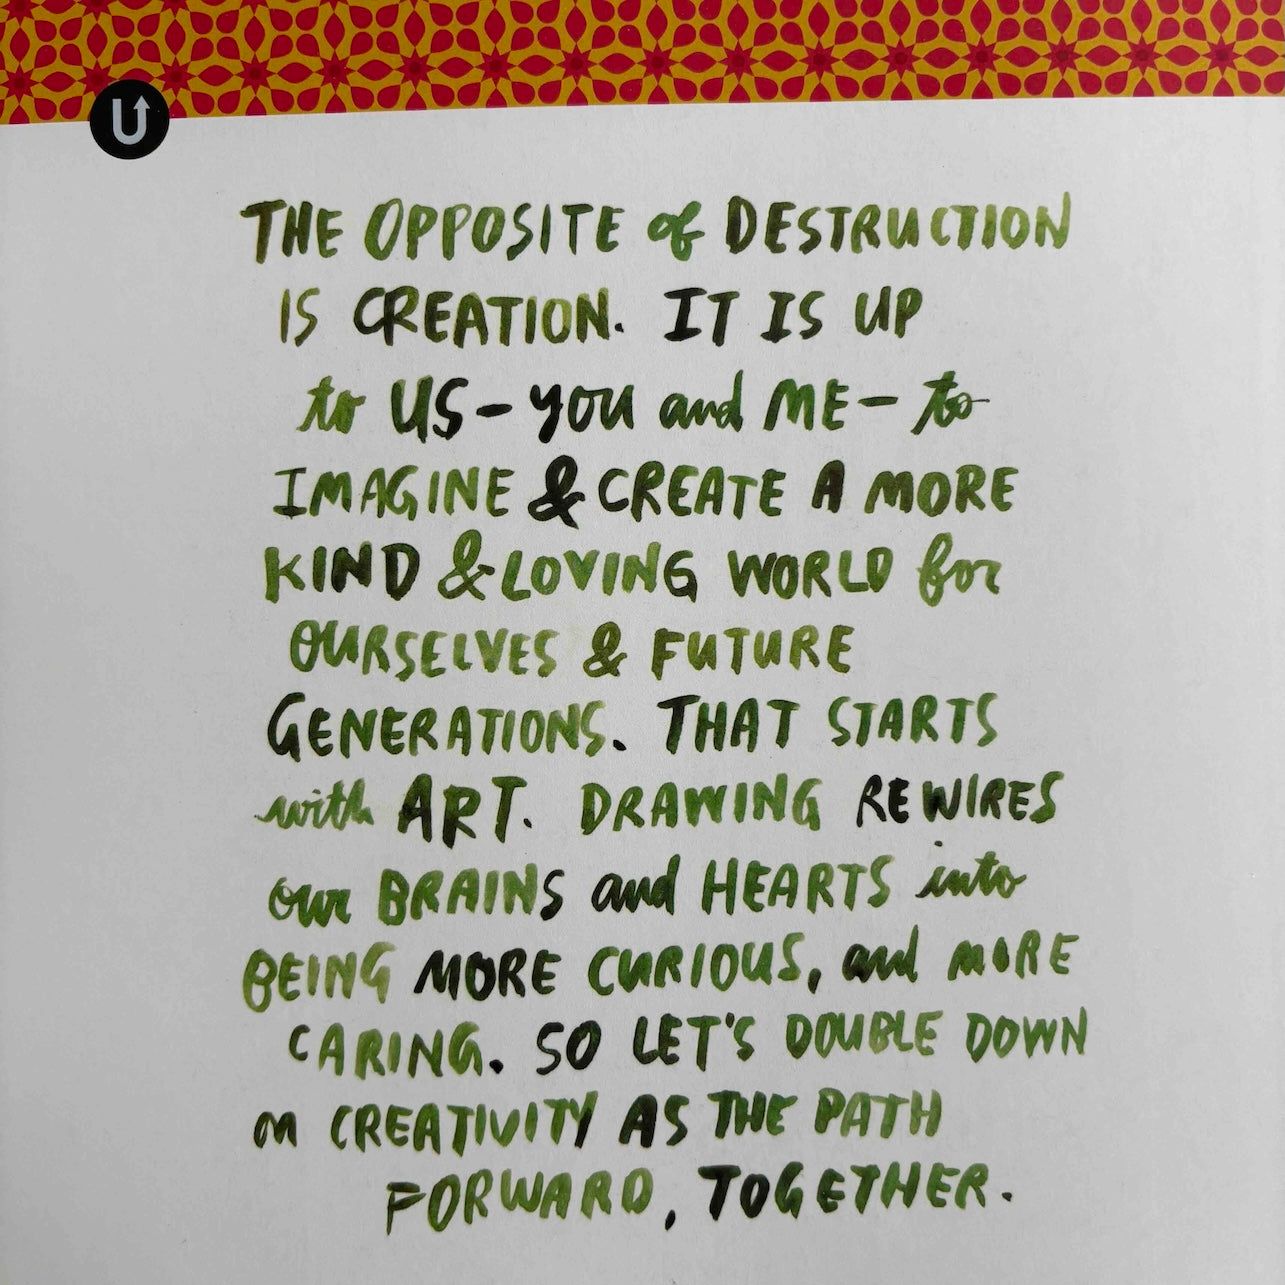 U
THE OPPOSITE of DESTRUCTION
IS CREATION. IT IS UP
to US - YOU and ME - to
IMAGINE & CREATE A MORE
KIND & LOVING WORLD for
OURSELVES & FUTURE
GENERATIONS. THAT STARTS
with ART. DRAWING REWIRES
our BRAINS and HEARTS into
BEING MORE CURIOUS, and MORE
CARING. SO LET'S DOUBLE DOWN
on CREATIVITY AS THE PATH
FORWARD, TOGETHER.